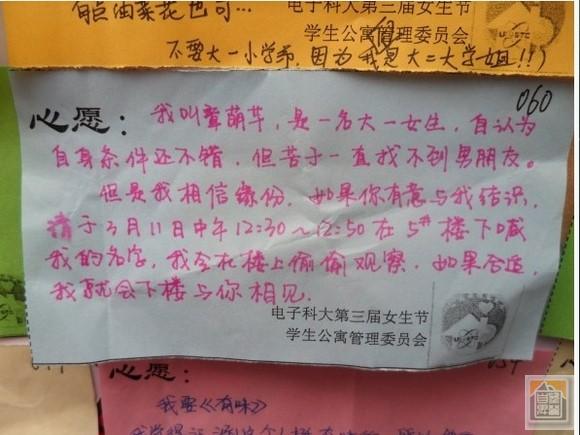 油菜花也可…
电子科大第三届女生节
学生公寓管理委员会
不要大一小学弟，因为我是大二大学姐!!)
060
心愿：我叫章萌芊，是一名大一女生，自认为
自身条件还不错，但苦于一直找不到男朋友。
但是我相信缘份，如果你有意与我结识，
请于3月11日中午12:30～12:50在5#楼下喊
我的名字，我会在楼上偷偷观察，如果合适，
我就会下楼与你相见.
电子科大第三届女生节
学生公寓管理委员会
心愿：
我要《有味》